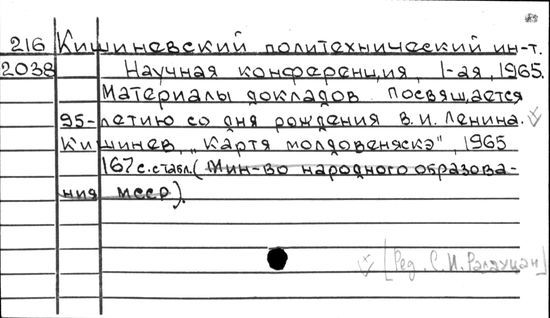 216 Кишиневский политехнический ин-т.
2038 Научная конференция, 1-ая, 1965.
Материалы докладов посвящается
95-летию со дня рождения В.И. Ленина.
Кишинев, "Картя молдовеняскэ", 1965
167 с. с табл. (Мин-во народного образова-
ния МССР).
[Ред. С.И. Радауцан]